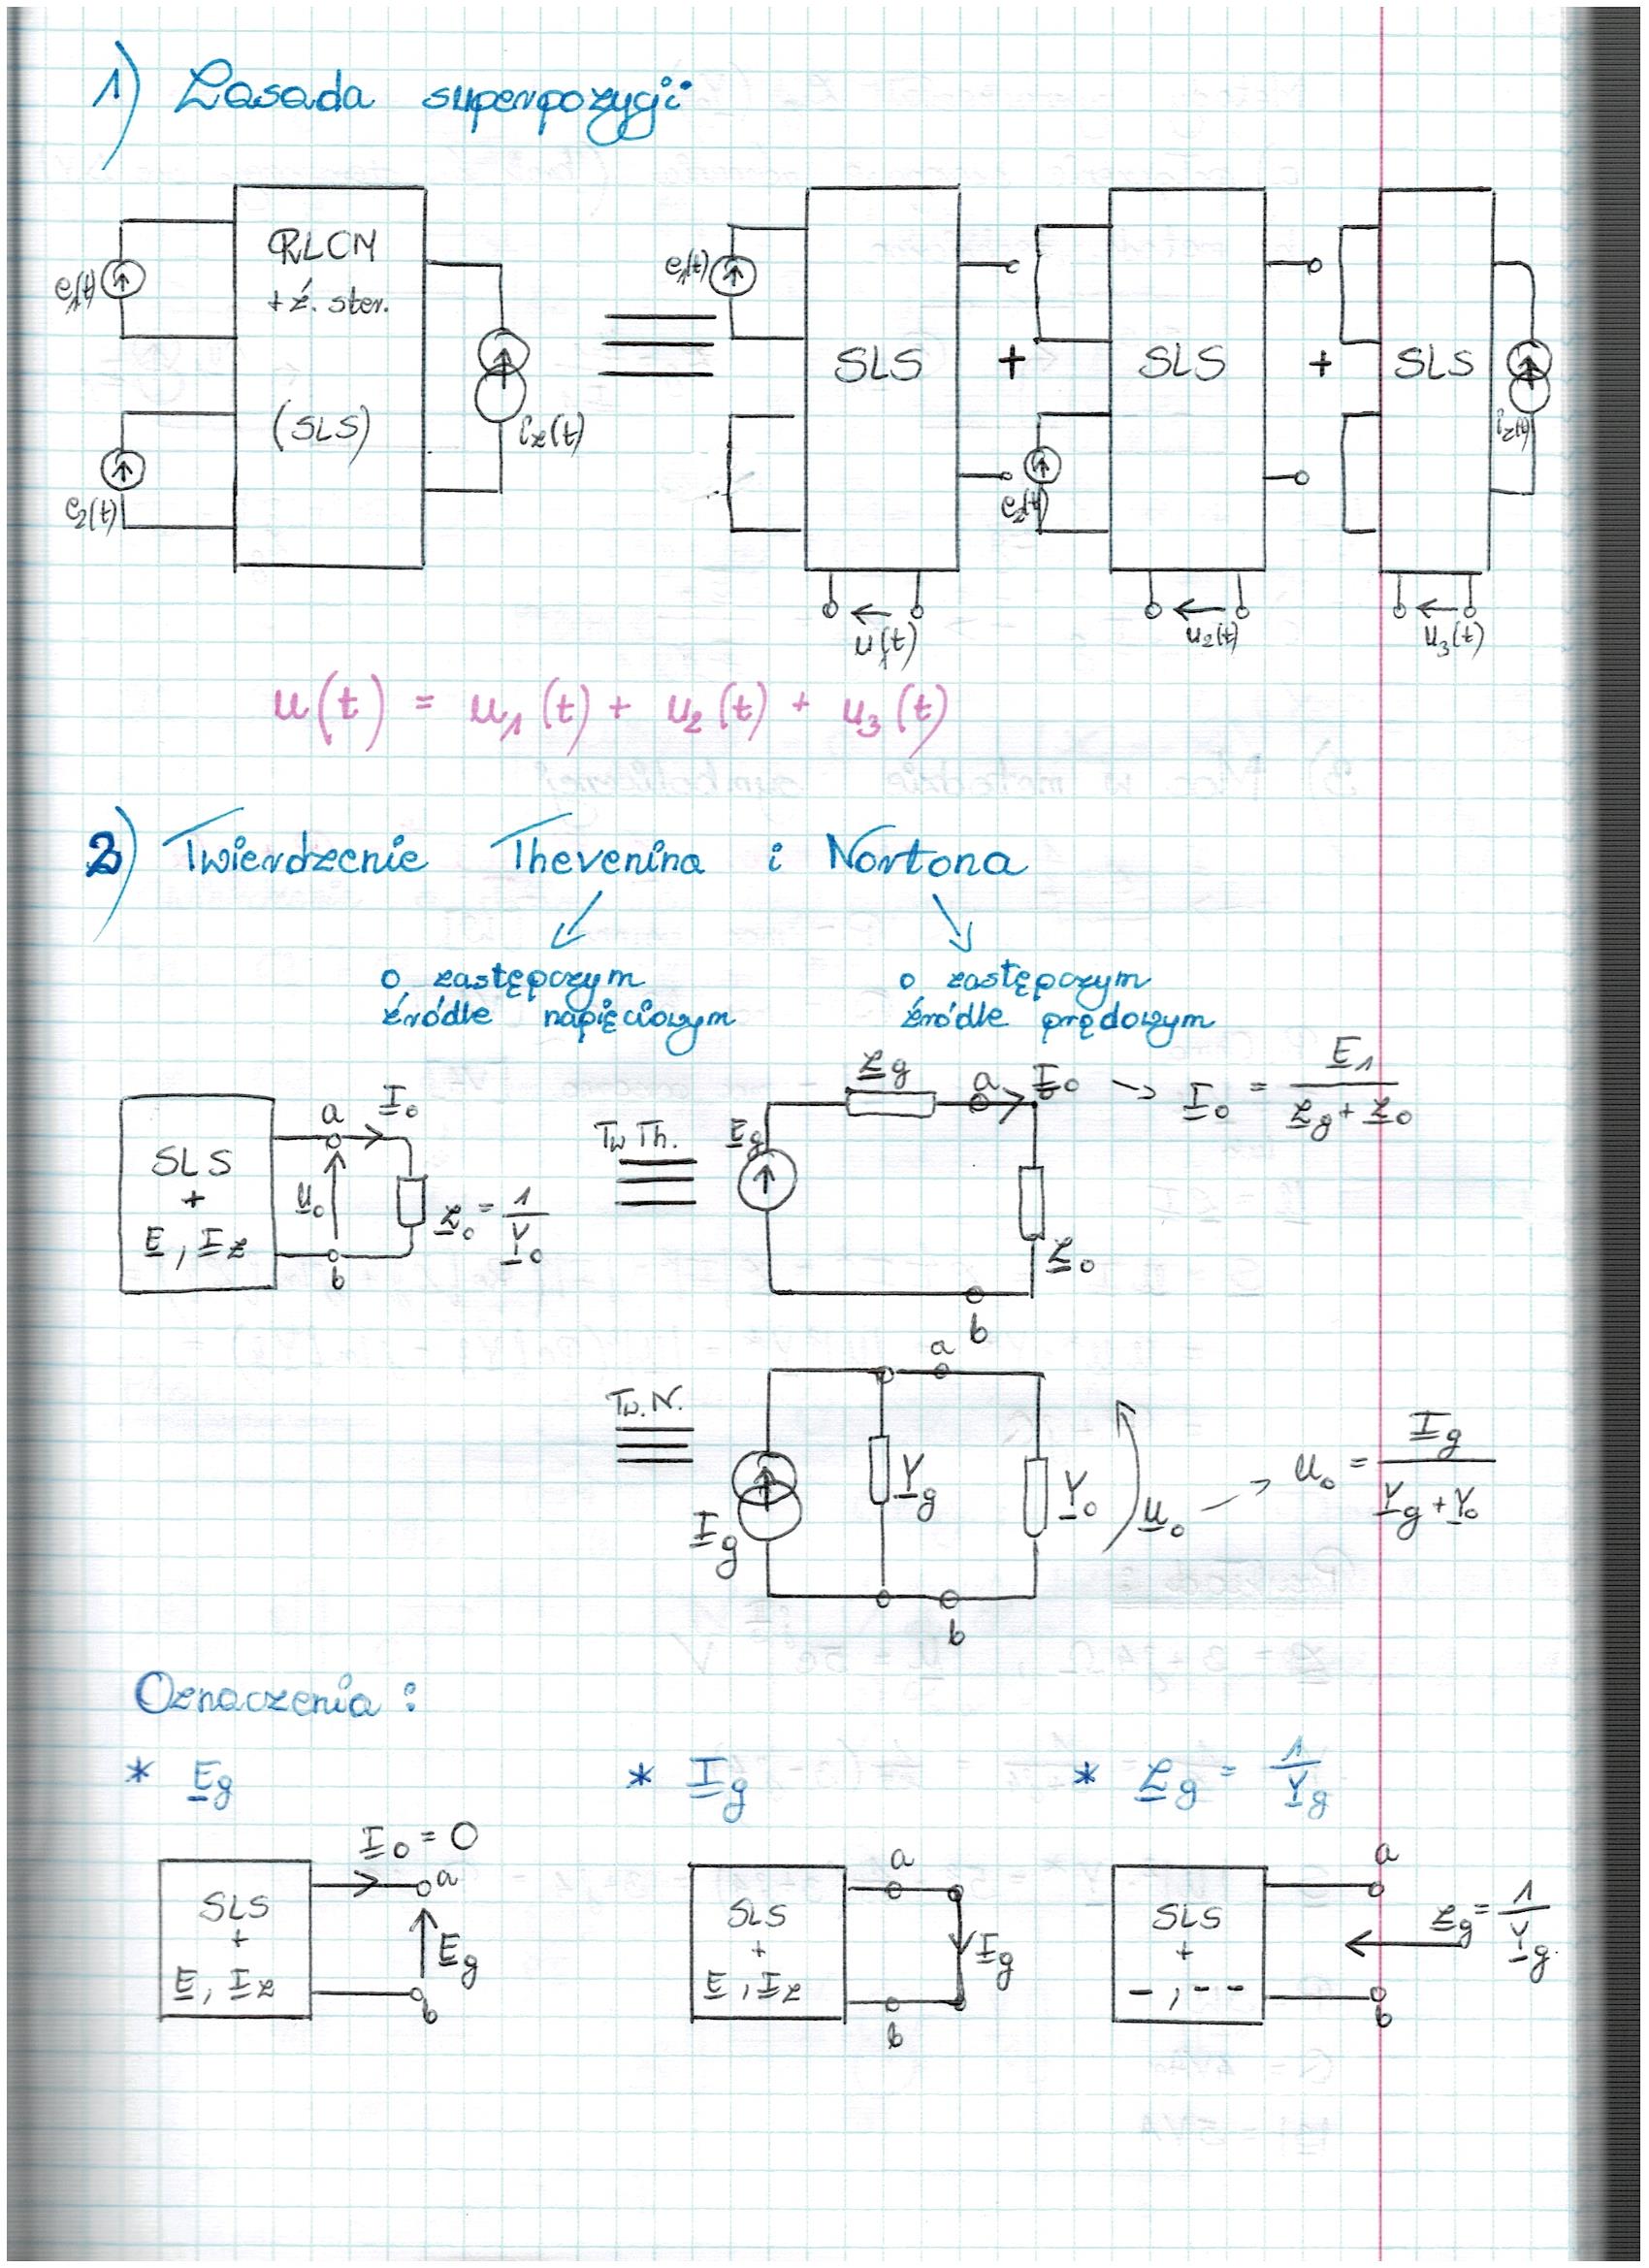 1) Zasada superpozycji
RLCM
+ ź. ster.
(SLS)
e1(t)
e2(t)
iz(t)
e1(t)
SLS
u1(t)
+
e2(t)
SLS
u2(t)
+
SLS
iz(t)
u3(t)
u(t) = u1(t) + u2(t) + u3(t)
2) Twierdzenie Thevenina i Nortona
o zastępczym
źródle napięciowym
o zastępczym
źródle prądowym
SLS
+
E, Iz
a
I0
U0
b
Z0 = 1/Y0
Tw Th.
Eg
Zg
a
I0 -> I0 = E1/(Zg + Z0)
Z0
b
Tw. N.
Ig
a
Yg
Y0
U0 -> U0 = Ig/(Yg + Y0)
b
Oznaczenia:
* Eg
* Ig
* Zg = 1/Yg
SLS
+
E, Iz
I0 = 0
a
Eg
b
SLS
+
E, Iz
a
Ig
b
SLS
+
-, --
a
Zg = 1/Yg
b